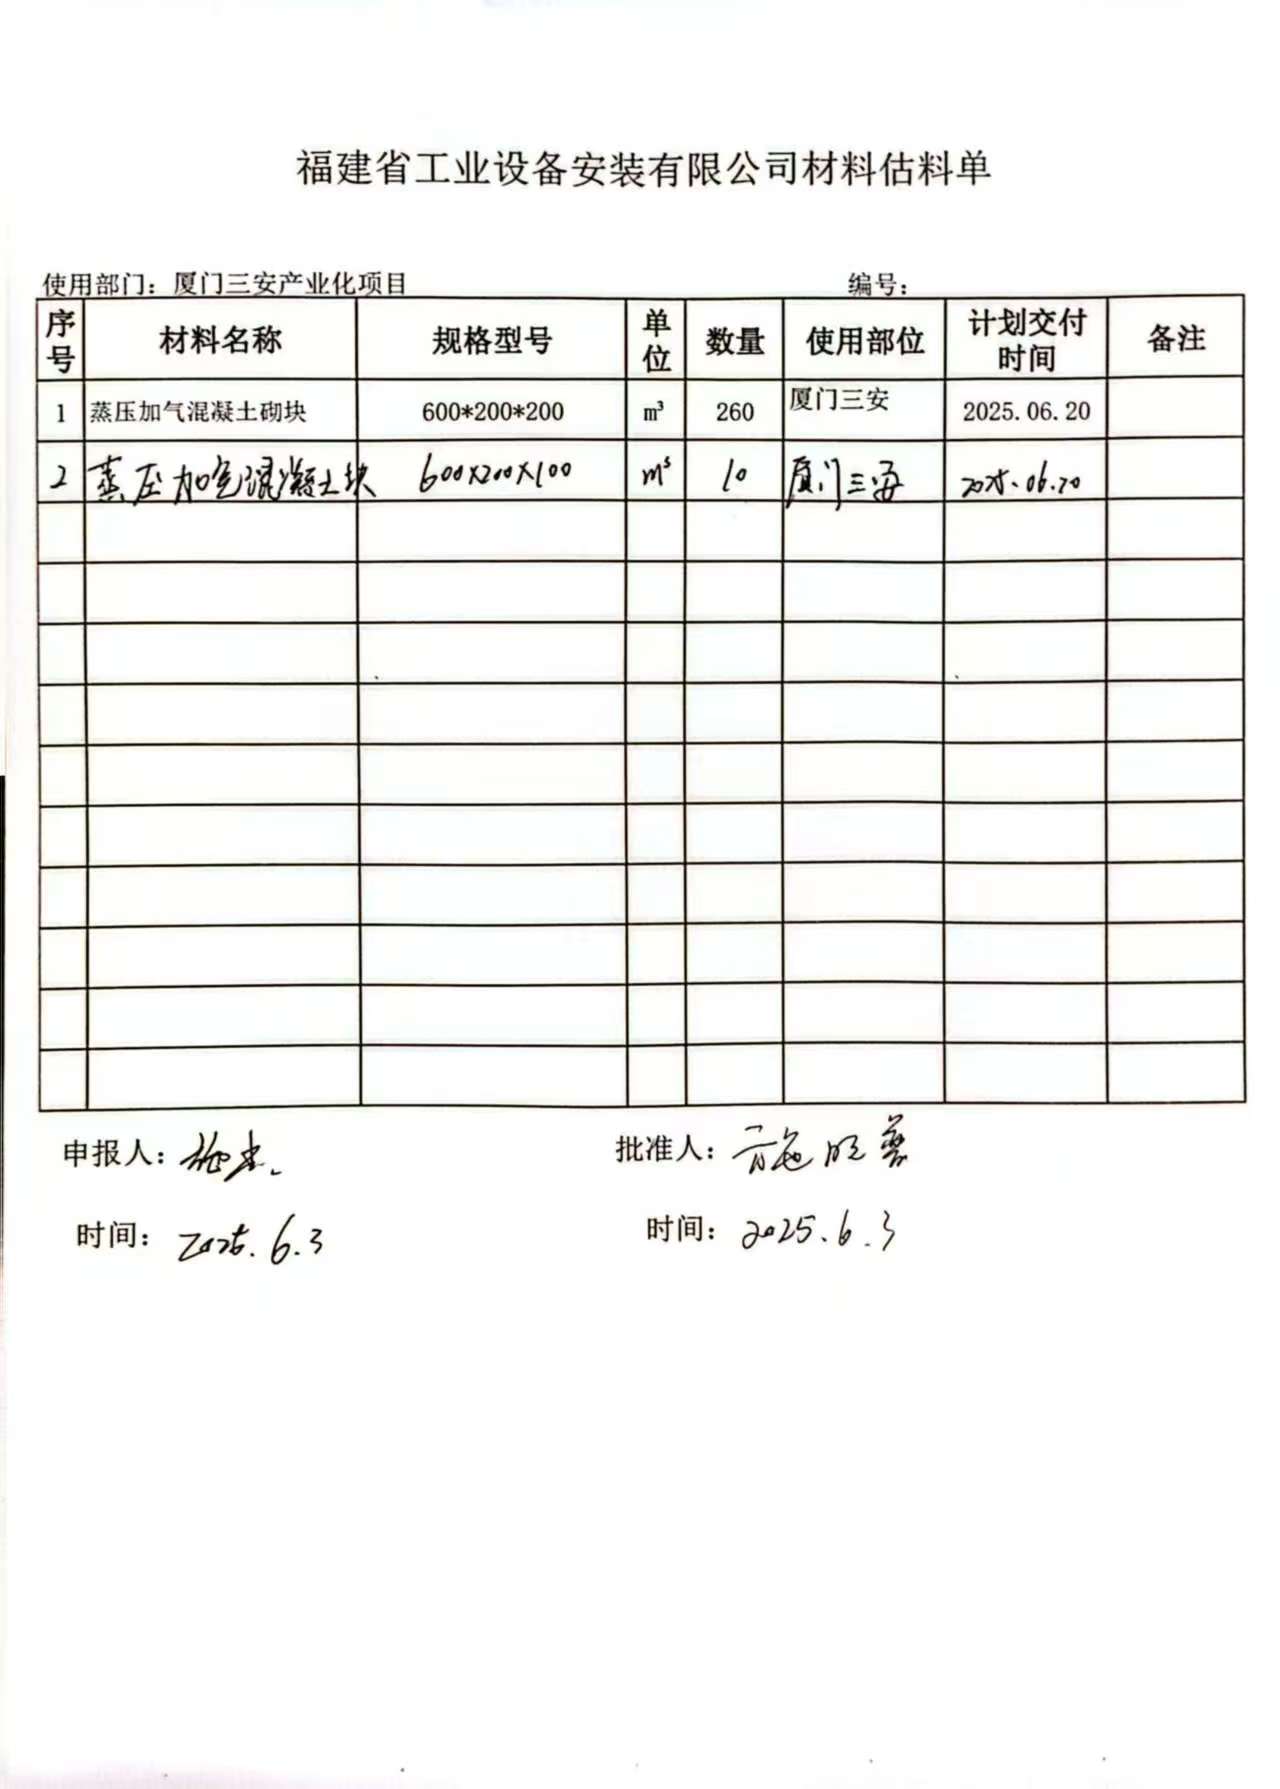 福建省工业设备安装有限公司材料估料单
使用部门：厦门三安产业化项目 编号：
序号 材料名称 规格型号 单位 数量 使用部位 计划交付时间 备注
1 蒸压加气混凝土砌块 600*200*200 m³ 260 厦门三安 2025.06.20
2 蒸压加气混凝土块 600X200X100 m³ 10 厦门三安 2025.06.20
申报人： 批准人：施明
时间：2025.6.3 时间：2025.6.3